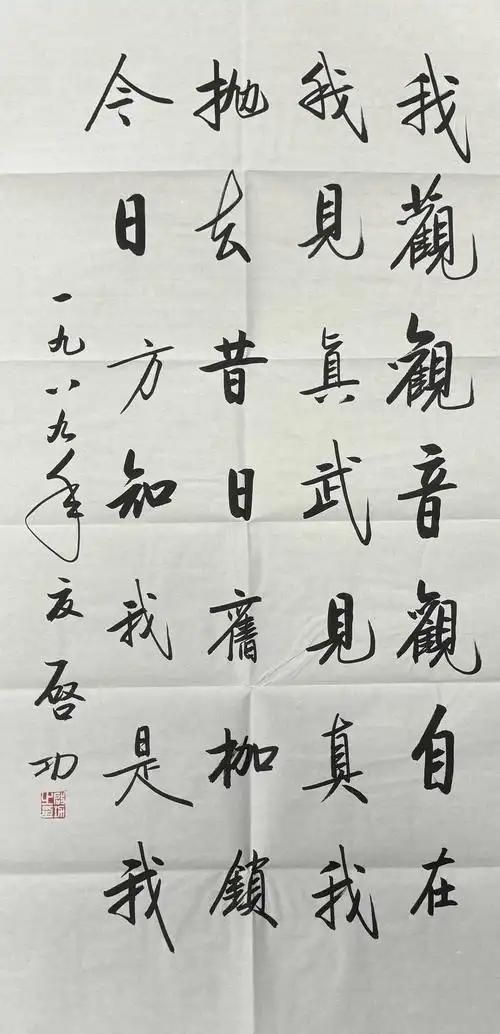 我觀觀音觀自在
我見真武見真我
抛去昔日舊枷鎖
今日方知我是我
一九八九年夏啓功